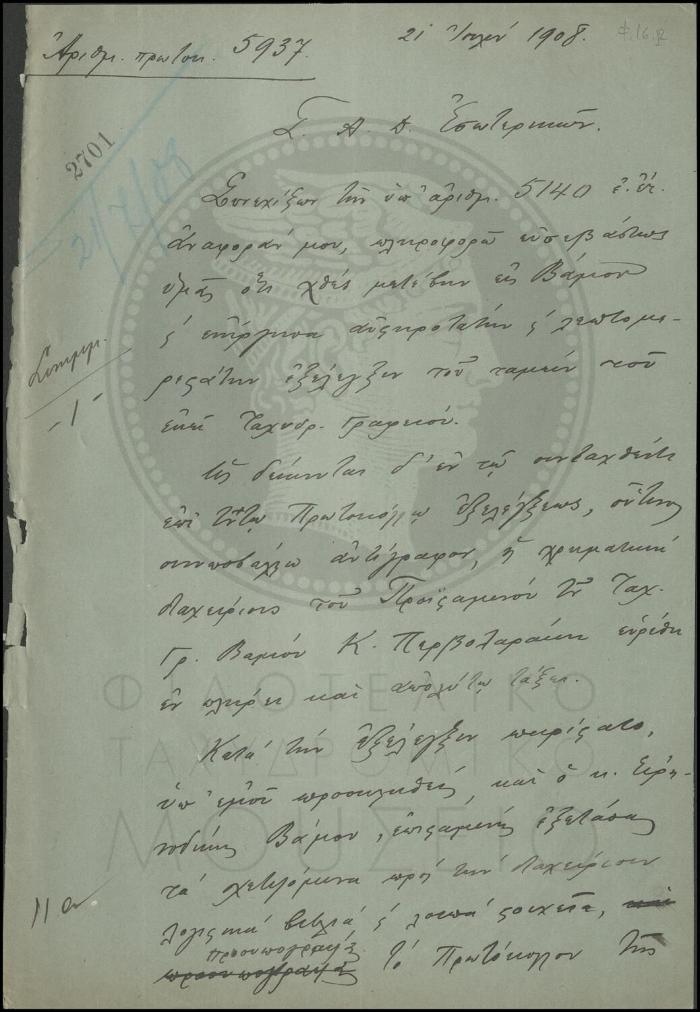 Ἀριθμ. πρωτοκ. 5937.
21 Ἰουλίου 1908.
Φ.16.
2701
21/7/08
Σ. Α. Δ. Ἐσωτερικῶν.
Συνεχίζων τὴν ὑπ' ἀριθμ. 5140 ἐ. ἔτ.
ἀναφοράν μου, πληροφορῶ εὐσεβάστως
ὑμᾶς ὅτι χθὲς μετέβην εἰς Βάμον
ϛ ἐνήργησα αὐστηροτάτην ϛ λεπτομε-
ρεστάτην ἐξέλεγξιν τοῦ ταμείου τοῦ
ἐκεῖ Ταχυδρ. Γραφείου.
Συνημμ.
-1-
Ὡς δείκνυται δ' ἐν τῷ συνταχθέντι
ἐπὶ τούτῳ Πρωτοκόλλῳ ἐξελέγξεως, οὗτινος
συνυποβάλλω ἀντίγραφον, ἡ χρηματικὴ
διαχείρισις τοῦ Προϊσταμένου τοῦ Ταχ.
Γρ. Βάμου Κ. Περβολαράκη εὑρέθη
ἐν πλήρει καὶ ἀπολύτῳ τάξει.
Κατὰ τὴν ἐξέλεγξιν παρίστατο,
ὑπ' ἐμοῦ προσκληθείς, καὶ ὁ κ. Εἰρη-
νοδίκης Βάμου, ἐπισταμένως ἐξετάσας
τὰ σχετιζόμενα πρὸς τὴν διαχείρισιν
λογιστικὰ βιβλία ϛ λοιπὰ στοιχεῖα, καὶ
προσυπογράψας
προσυπογράψας τὸ Πρωτόκολλον τῆς
ΦΙΛΟΤΕΛΙΚΟ
ΤΑΧΥΔΡΟΜΙΚΟ
ΜΟΥΣΕΙΟ